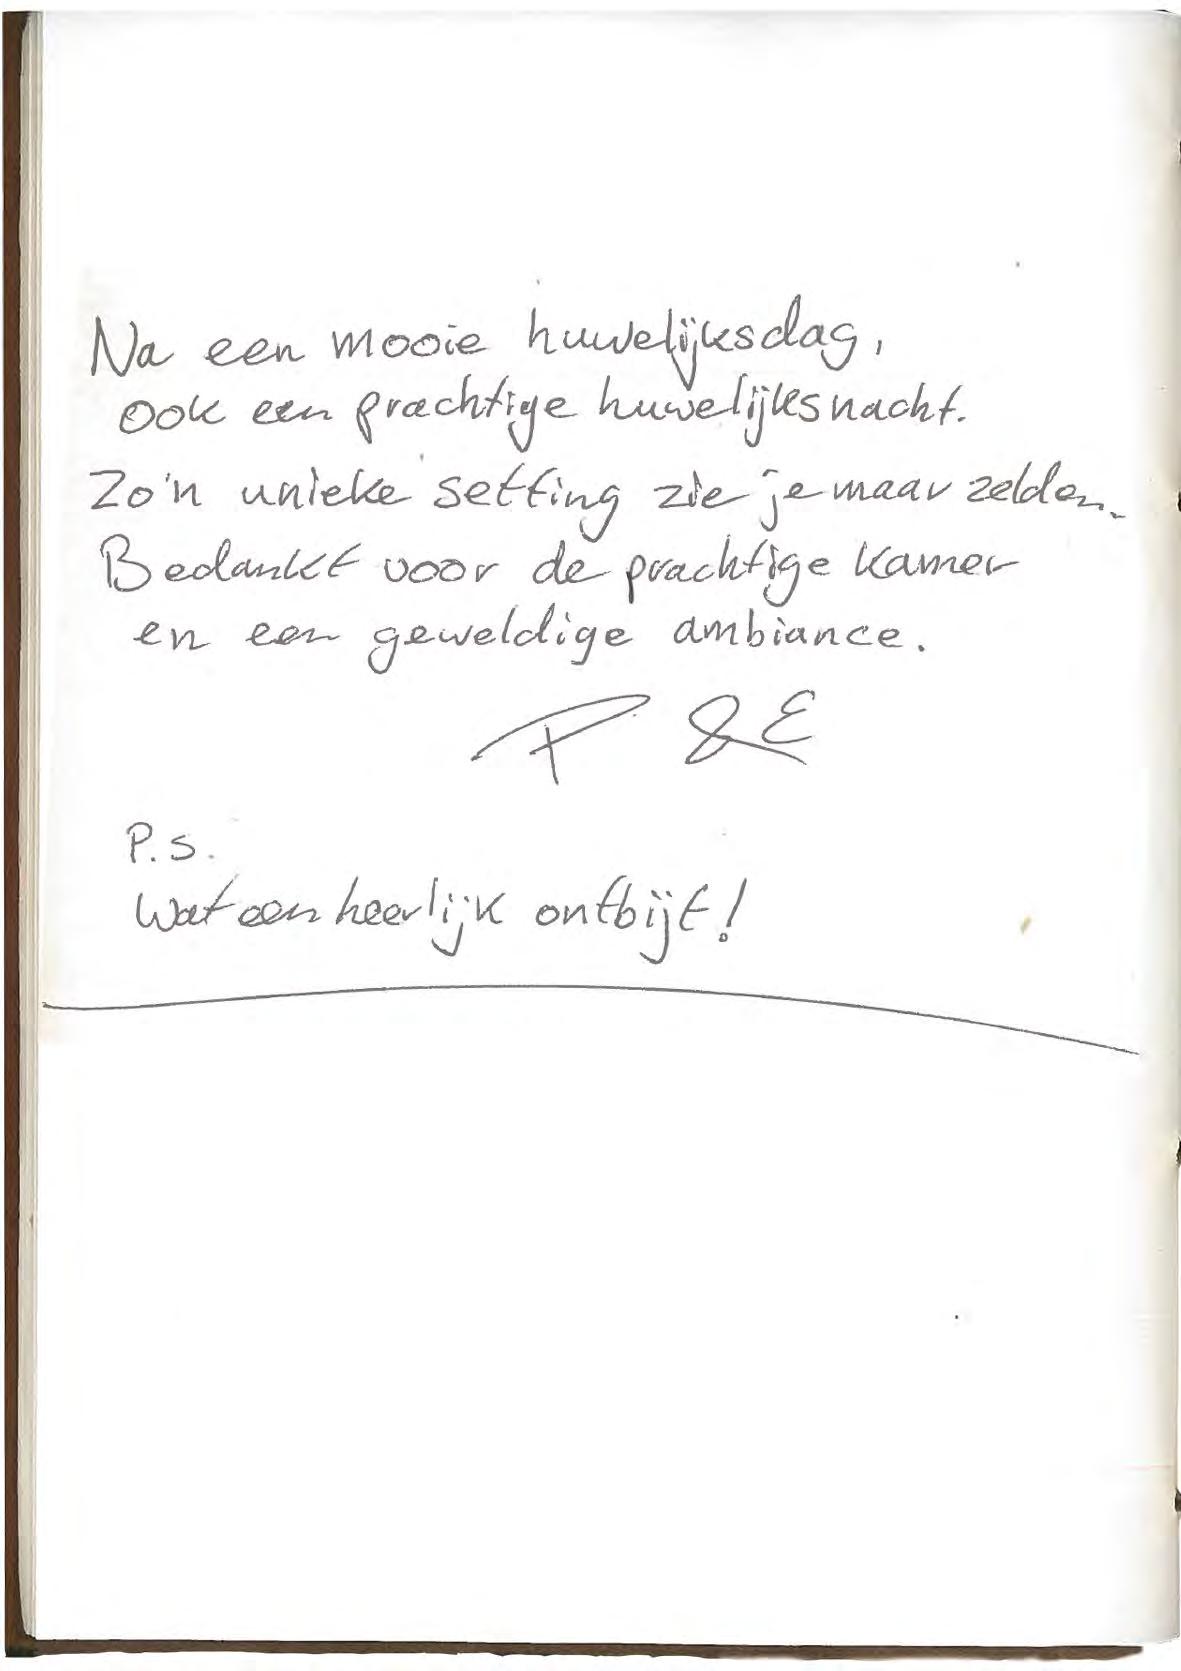 Na een mooie huwelijksdag,
ook een prachtige huwelijksnacht.
Zo'n unieke setting zie je maar zelden.
Bedankt voor de prachtige kamer
en een geweldige ambiance.
P & E
P.S.
Wat een heerlijk ontbijt!